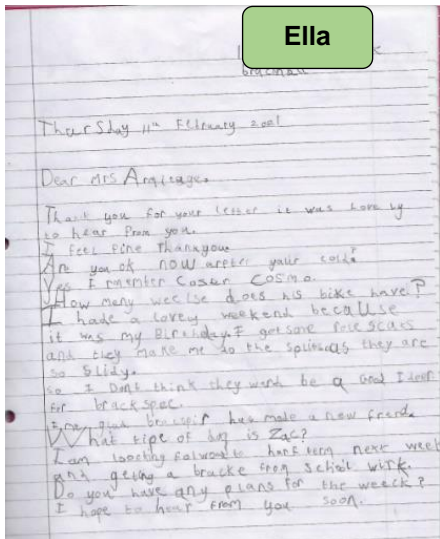 Ella
Thursday 11th February 2021
Dear Mrs Armitage.
Thank you for your letter it was lovely
to hear from you.
I feel fine thankyou.
Are you ok now arfter your cold?
Yes I rememter Coser Cosmo.
How meny weelse does his bike have?
I hade a lovey weekend because
it was my Birthday. I got some role scars
and they make me do the splits as they are
so Slidy.
so I Dont think they wond be a Good Ideer
for brackspec.
has made a new friend.
What tipe of dog is Zac?
I am looking forwoard to harf term next week
and geting a bracke from school wirk.
Do you have any plans for the weeck?
I hope to hear from you soon.